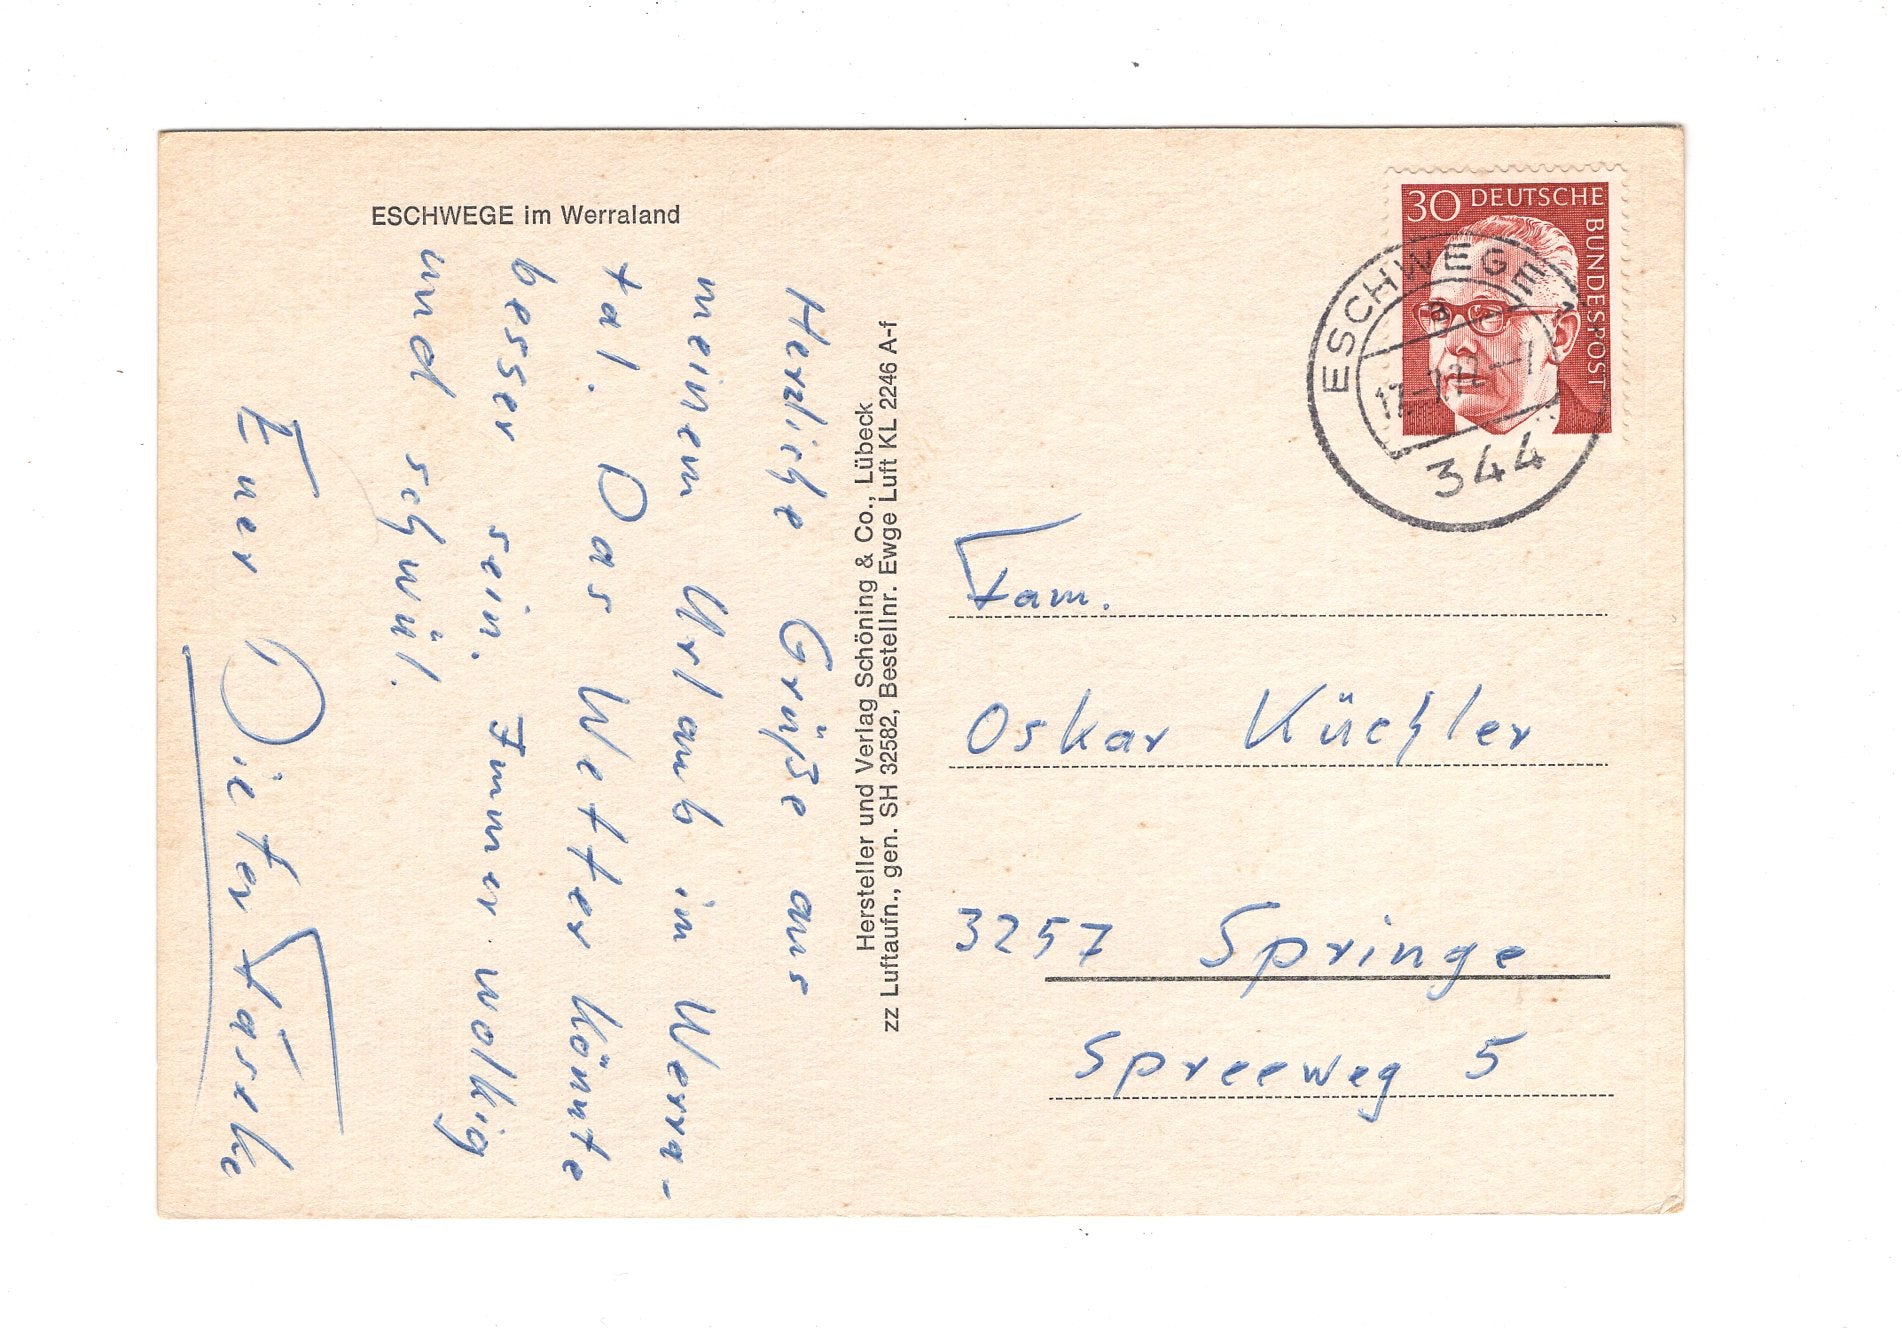 ESCHWEGE im Werraland
Herzliche Grüße aus
meinem Urlaub in Werra-
tal. Das Wetter könnte
besser sein. Immer wolkig
und schwül.
Euer Dieter
Hersteller und Verlag Schöning & Co., Lübeck
zz Luftaufn., gen. SH 32582, Bestellnr. Ewge Luft KL 2246 A-f
30 DEUTSCHE
BUNDESPOST
ESCHWEGE 1
a
344
Fam.
Oskar Küchler
3257 Springe
Spreeweg 5